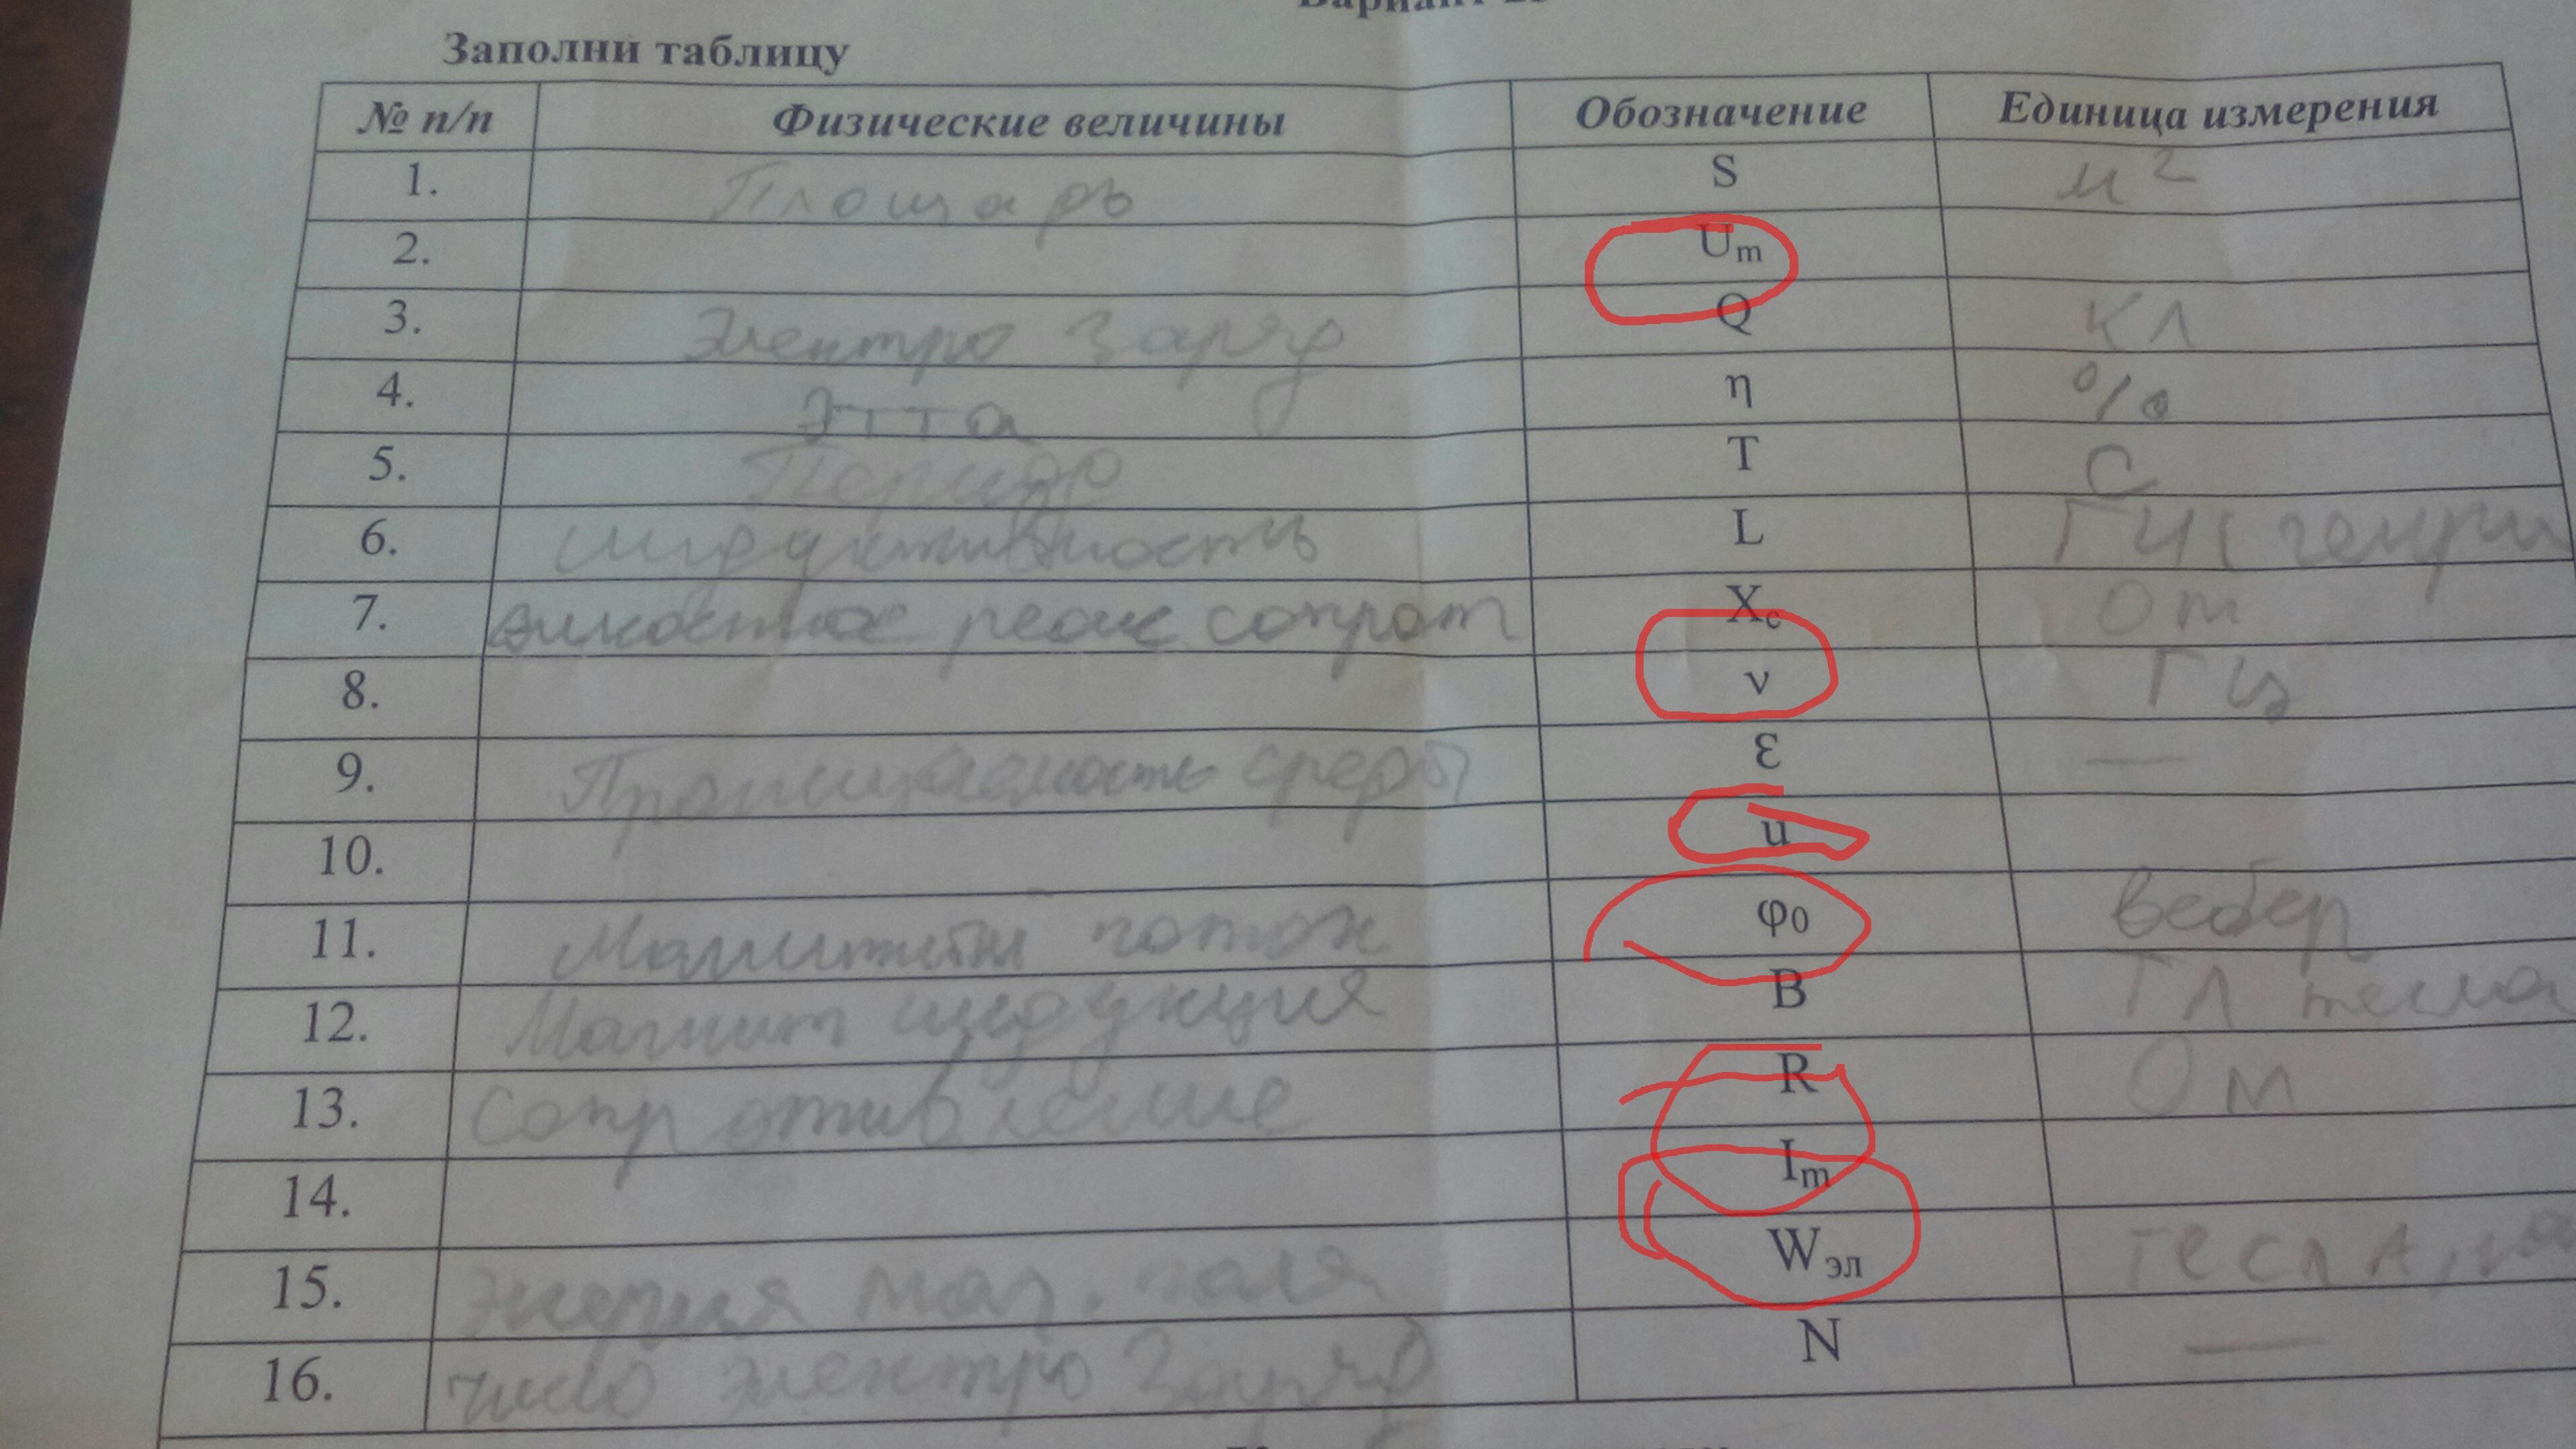 Заполни таблицу
№ п/п Физические величины Обозначение Единица измерения
1. Площадь S м²
2. Um
3. Электро Заряд Q Кл
4. Этта η %
5. Период T С
6. индуктивность L ГН(генри
7. емкостное реак сопрот Xc Om
8. ν ГЦ
9. Проницаемость среды ε —
10. u
11. Магнитный поток φ0 Вебер
12. Магнит индукция B ТЛ тесла
13. Сопротивление R Ом
14. Im
15. Энергия маг. поля Wэл Тесла,
16. число электро Заряд N —